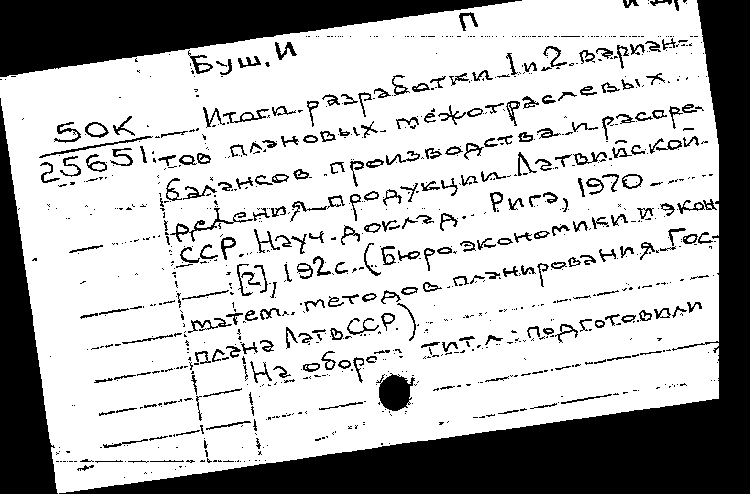 П
Буш, И
50К
25651
Итоги разработки 1 и 2 вариан-
тов плановых межотраслевых
балансов производства и распре-
деления продукции Латвийской
ССР. Науч. доклад. Рига, 1970
[2], 192 с. (Бюро экономики и экон-
матем. методов планирования Гос-
плана Латв.ССР.)
На оборо тит. л.: подготовили